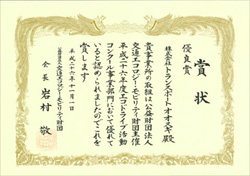 賞状
優良賞
株式会社トランスポートオオスギ殿
貴事業所の取組は公益財団法人
交通エコロジー・モビリティ財団主催
平成二十六年度エコドライブ活動
コンクール事業部門において優れて
いると認められましたのでこれを
賞します
平成二十六年十一月一日
公益財団法人交通エコロジー・モビリティ財団
会長 岩村 敬